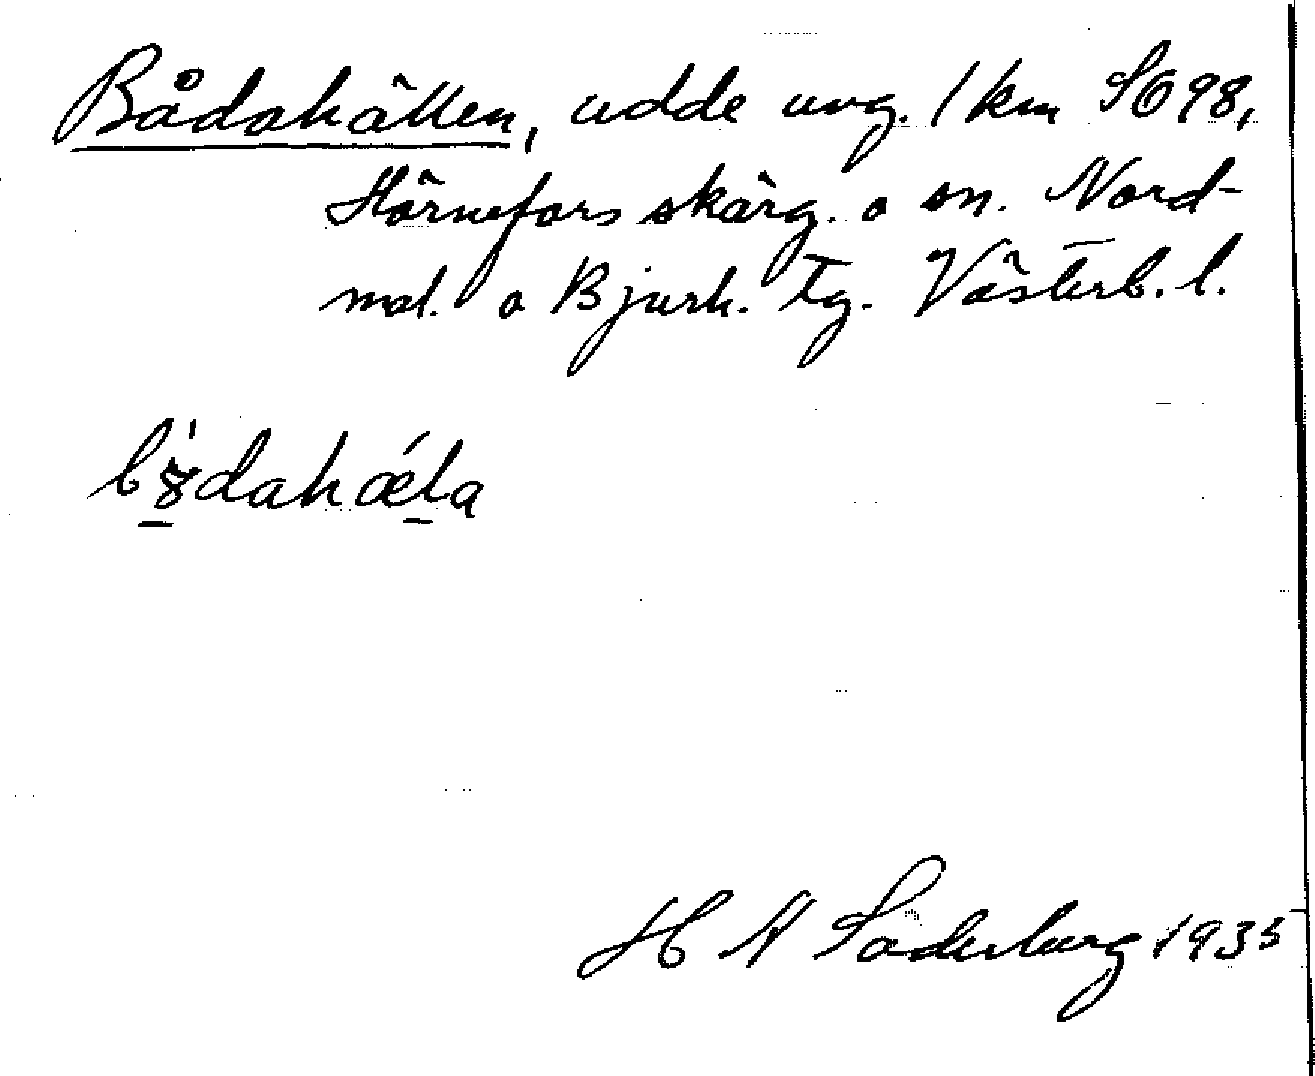 Bådahällen, udde ung. 1 km SO 98,
Hörnefors skärg. o sn. Nord-
mal. o Bjurh. tg. Västerb. l.
H N Söderberg 1935